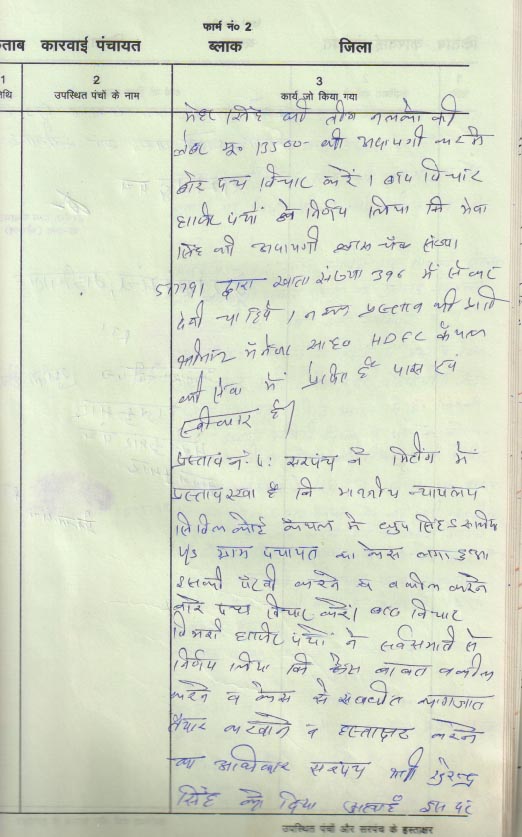 फार्म नं० 2
ताब कारवाई पंचायत ब्लाक जिला
1 2 3
थि उपस्थित पंचों के नाम कार्य जो किया गया
सिंह की तीन नलको की
लेबर मू० 13500- की अदायगी करने
बारे पंच विचार करें। बाद विचार
हाजिर पंचों ने निर्णय लिया कि मेवा
सिंह की अदायगी चैक संख्या
511191 द्वारा खाता संख्या 396 में से कर
देनी चाहिये। नकल प्रस्ताव की प्रति
श्रीमान मैनेजर साहब HDFC कैथल
की सेवा में प्रेषित है पास एवं
स्वीकार है।
प्रस्ताव नं. 4: सरपंच ने मिटींग में
प्रस्ताव रखा है कि माननीय न्यायालय
सिविल कोर्ट कैथल में सिंह
V/S ग्राम पंचायत का केस लगा हुआ
इसकी पैरवी करने व वकील करने
बारे पंच विचार करें। बाद विचार
हाजिर पंचों ने सर्वसमति से
निर्णय लिया कि केस बाबत वकील
करने व केस से संबंधित कागजात
तैयार करवाने व हस्ताक्षर करने
का अधिकार सरपंच श्री
सिंह को दिया जाता है इस पर
उपस्थित पंचों और सरपंच के हस्ताक्षर